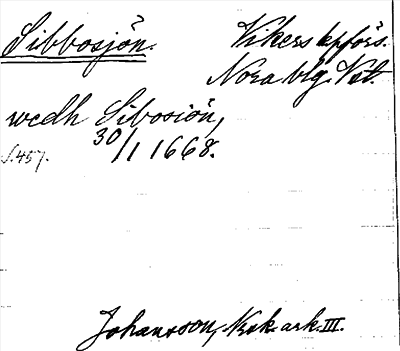 Sibbosjön. Vikers kpförs.
Nora blg. Vst.
wedh Sibosiön,
30/1 1668.
s. 457.
Johansson, Nsk. ark. III.